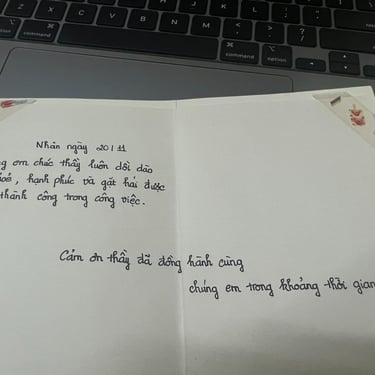 command
option
command
option
Nhân ngày 20/11
ng em chúc thầy luôn dồi dào
khoẻ, hạnh phúc và gặt hái được
thành công trong công việc.
Cảm ơn thầy đã đồng hành cùng
chúng em trong khoảng thời gian